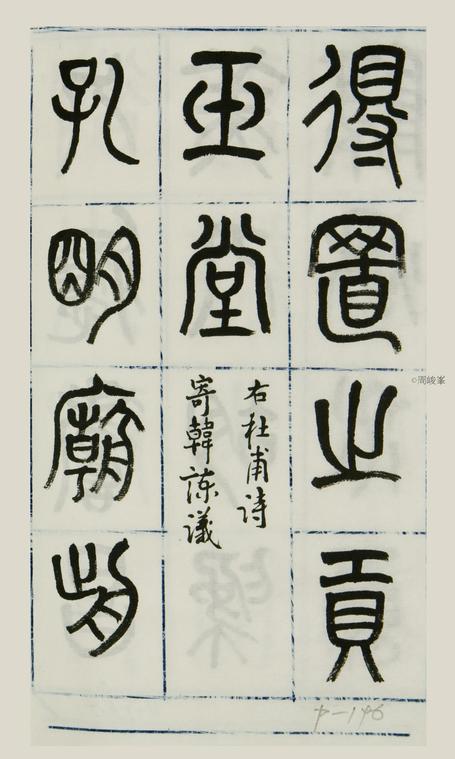 得置之貢
玉堂
右杜甫詩
寄韓諫議
孔明廟前
©周峻峯